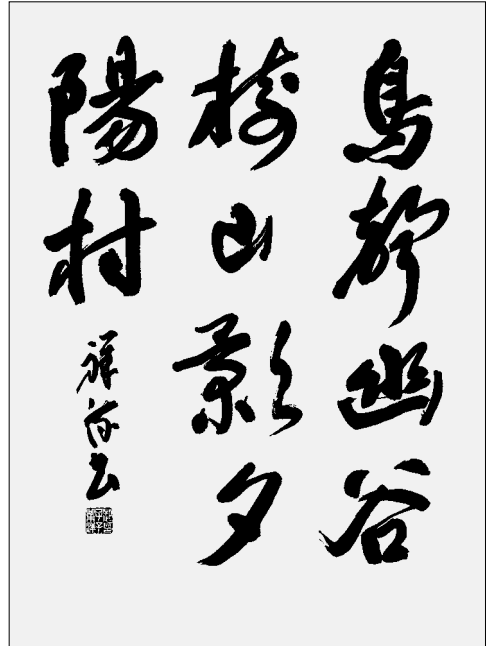 鳥聲幽谷
樹山影夕
陽村
祥